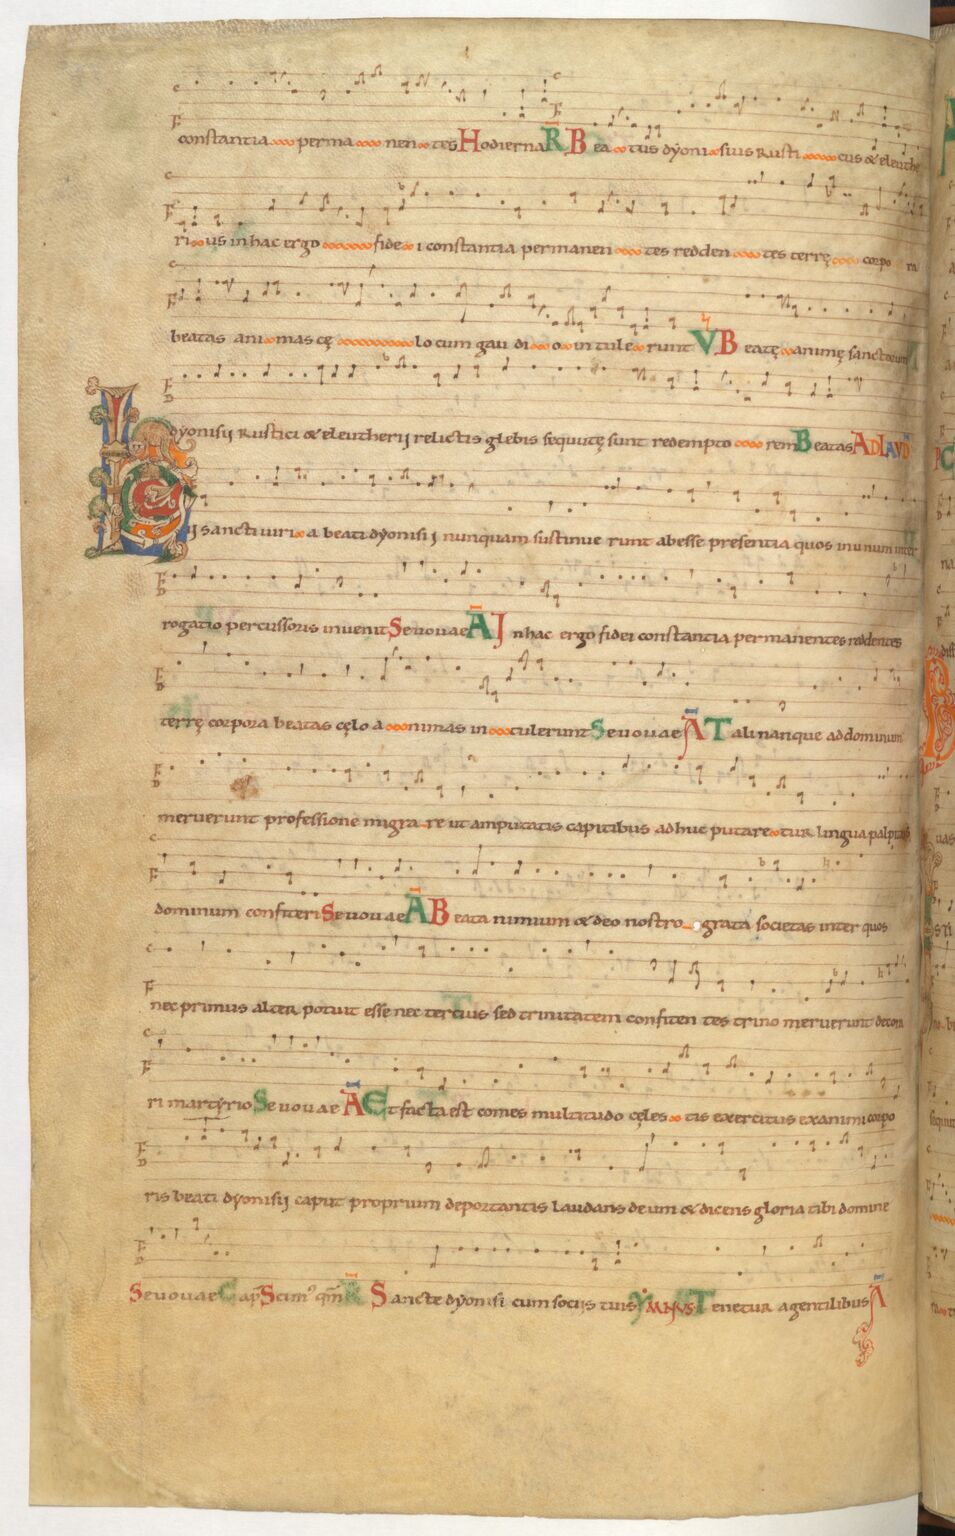 constantia perma nen tes Hodierna R Bea tus dyoni sius Rusti cus & eleuthe
ri us in hac ergo fide i constantia permanen tes redden tes terrę corpo ra
beatas ani mas cę lo cum gau di o in tule runt V Beatę animę sanctorum
dyonisij Rustici & eleutherij relictis glebis sequutę sunt redempto rem Beatas AD LAVD
Hij sancti viri a beati dyonisij nunquam sustinue runt abesse presentia quos in unum inter
rogatio percussoris invenit Sevovae A In hac ergo fidei constantia permanentes reddentes
terrę corpora beatas cęlo a nimas in tulerunt Sevovae A Tali nanque ad dominum
meruerunt professione migra re ut amputatis capitibus adhuc putare tur lingua palpitans
dominum confiteri Sevovae A Beata nimium & deo nostro grata societas inter quos
nec primus alter potuit esse nec tercius sed trinitatem confiten tes trino meruerunt decora
ri martyrio Sevovae A Et facta est comes multitudo cęles tis exercitus exanimi corpo
ris beati dyonisij caput proprium deportantis laudans deum & dicens gloria tibi domine
Sevovae Cap Scimꝰ qm̄ R Sancte dyonisi cum sociis tuis YMNVS Tenetur a gentilibus A